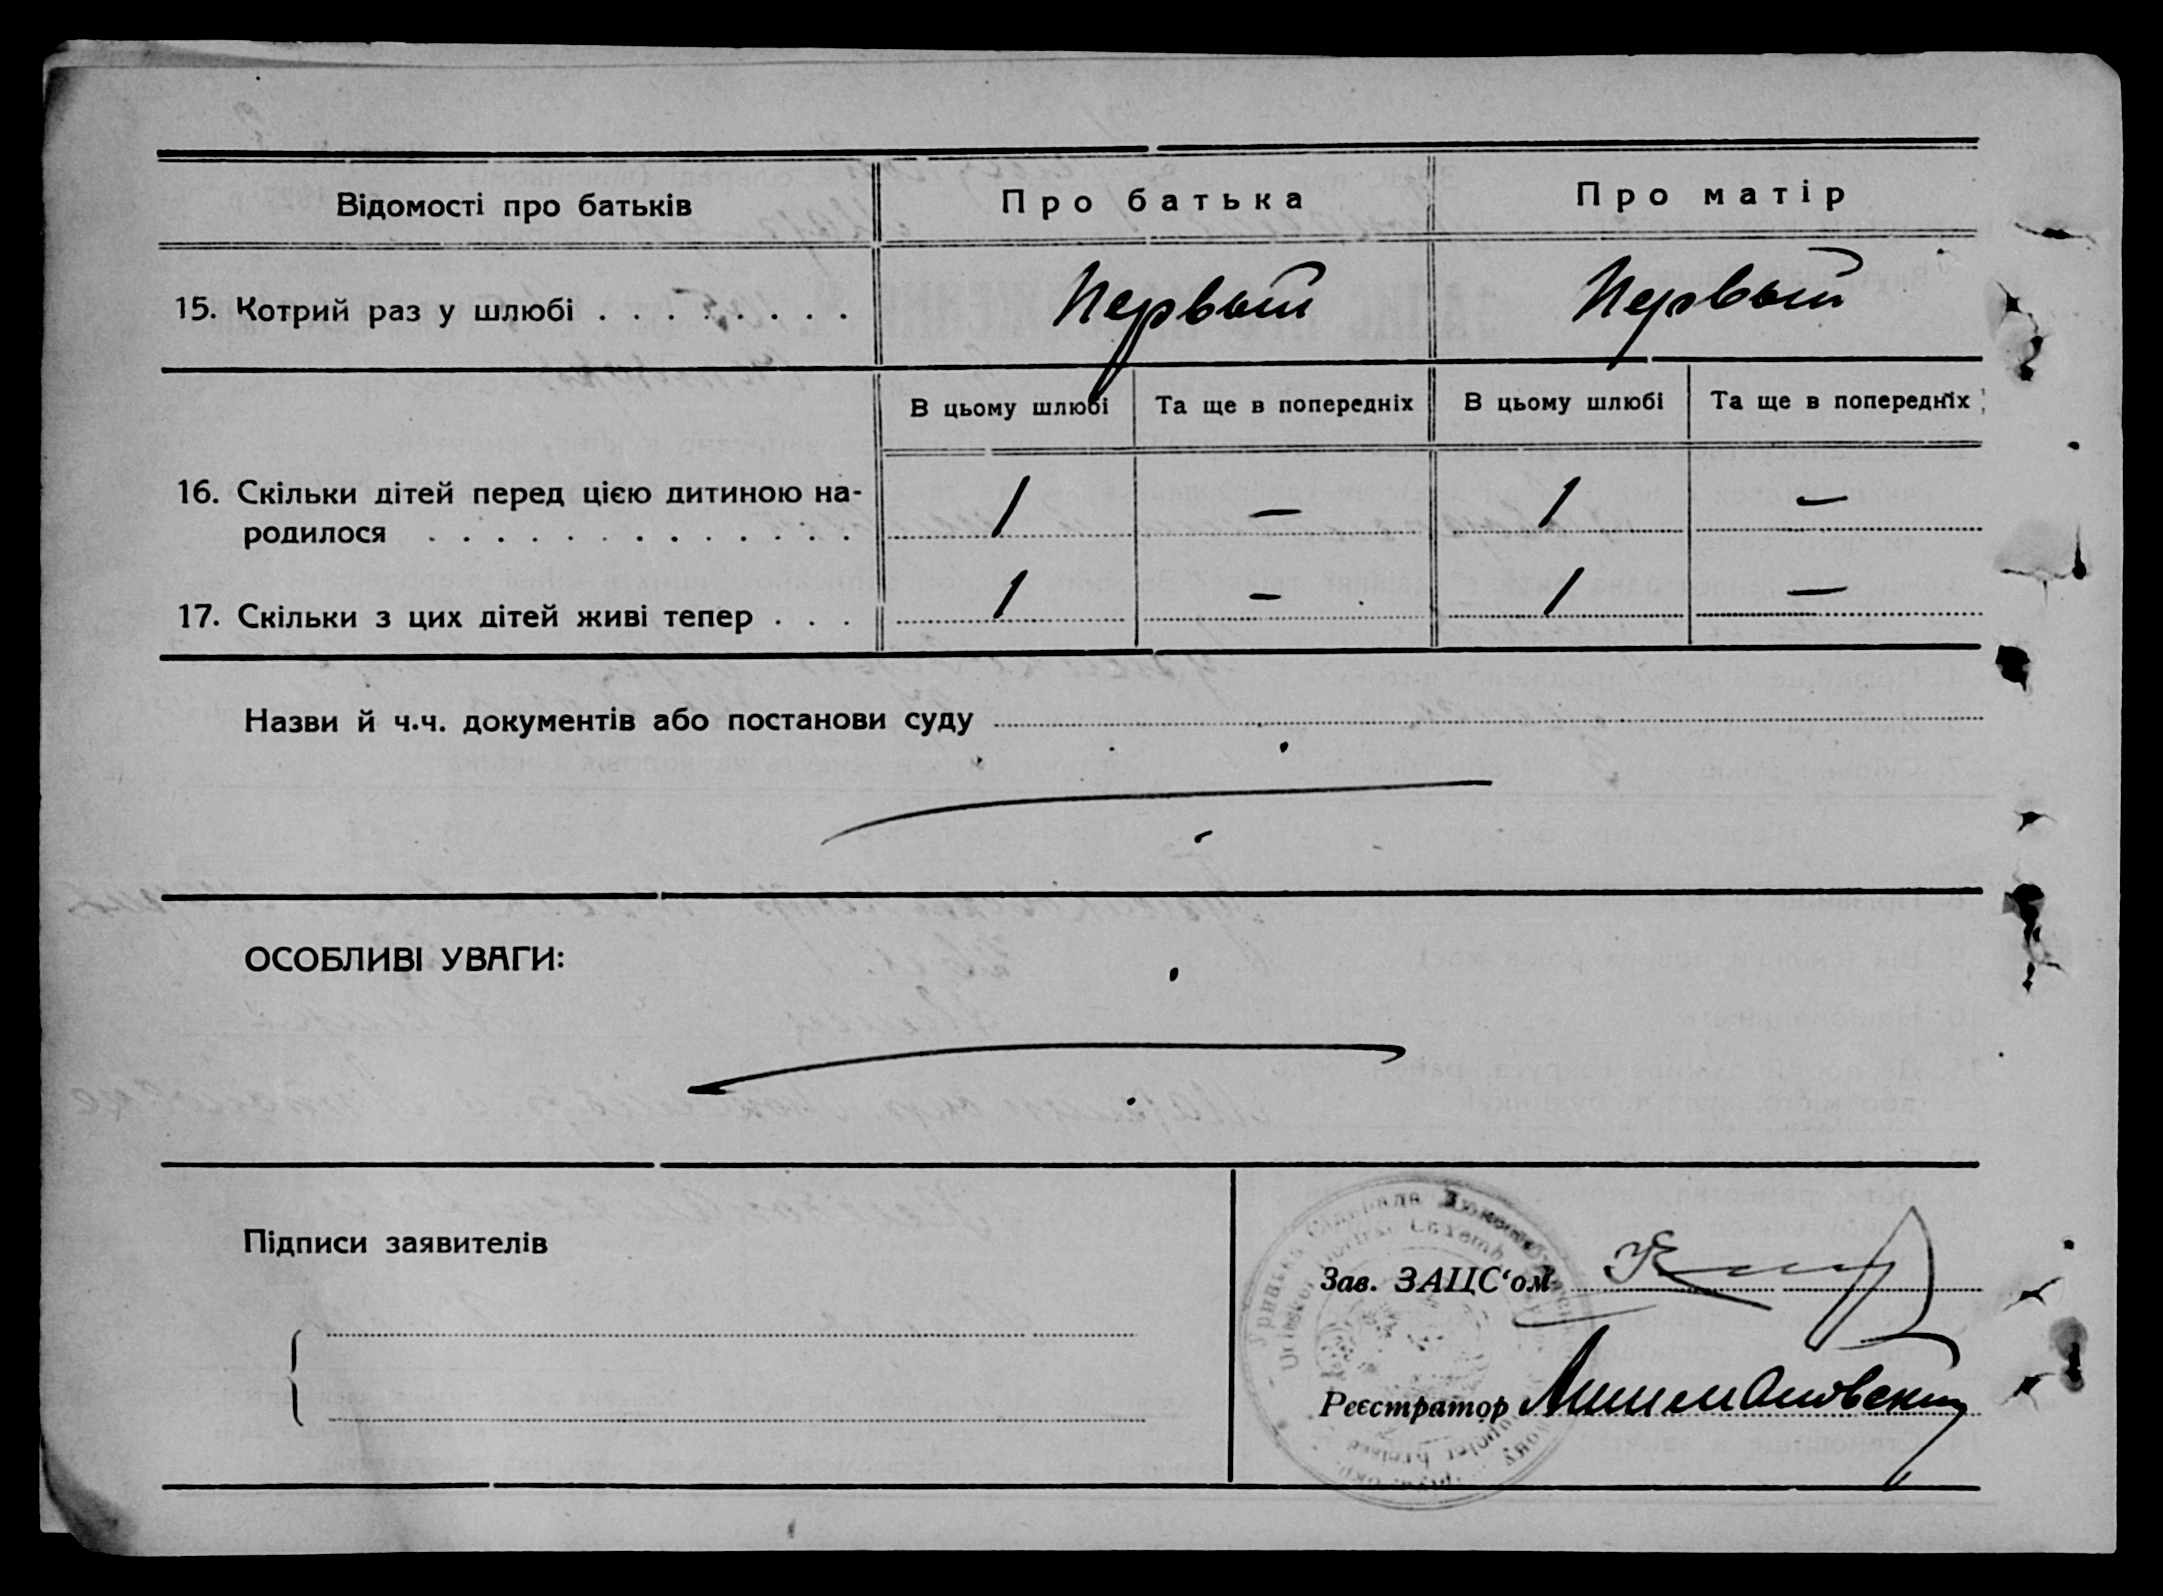 Відомості про батьків
Про батька
Про матір
15. Котрий раз у шлюбі . . . . . . . .
Первый
Первый
В цьому шлюбі
Та ще в попередніх
В цьому шлюбі
Та ще в попередніх
16. Скільки дітей перед цією дитиною на-
родилося . . . . . . . . . . . . .
1
–
1
–
17. Скільки з цих дітей живі тепер . . .
1
–
1
–
Назви й ч.ч. документів або постанови суду
ОСОБЛИВІ УВАГИ:
Підписи заявителів
Зав. ЗАЦС‘ом
Реєстратор